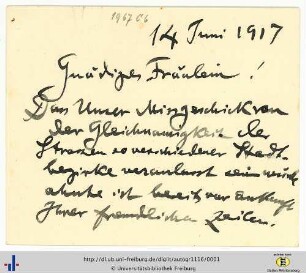 1967 66
14 Juni 1917
Gnädiges Fräulein!
Dass Unser Missgeschick von
der Gleichnamigkeit der
Strassen so verschiedener Stadt-
bezirke veranlasst sein
ahnte ich bereits vor Ankunft
Ihrer freundlichen Zeilen.
http://dl.ub.uni-freiburg.de/diglit/autogr1116/0001
© Universitätsbibliothek Freiburg